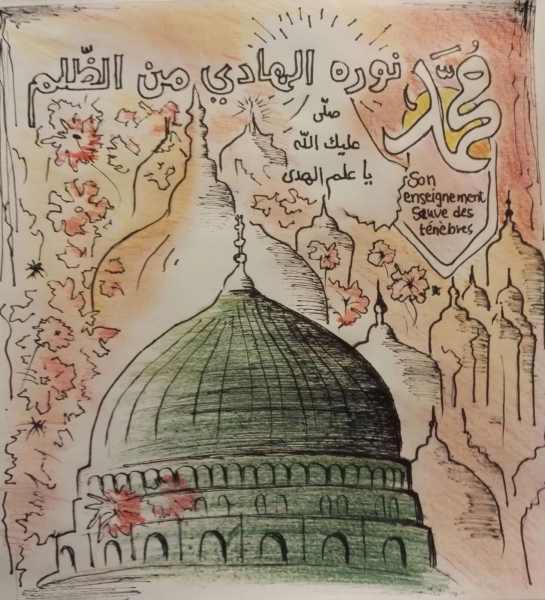 محمّد نوره الهادي من الظّلم
صلّى
عليك الله
يا علم الهدى
Son
enseignement
Sauve des
ténèbres